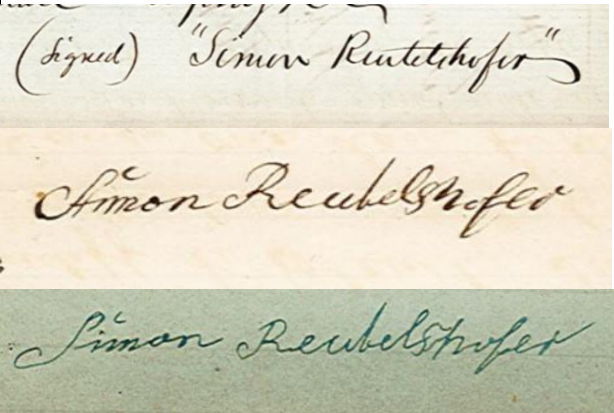 (Signed) "Simon Reutelshofer"
Simon Reubelshofer
Simon Reubelshofer